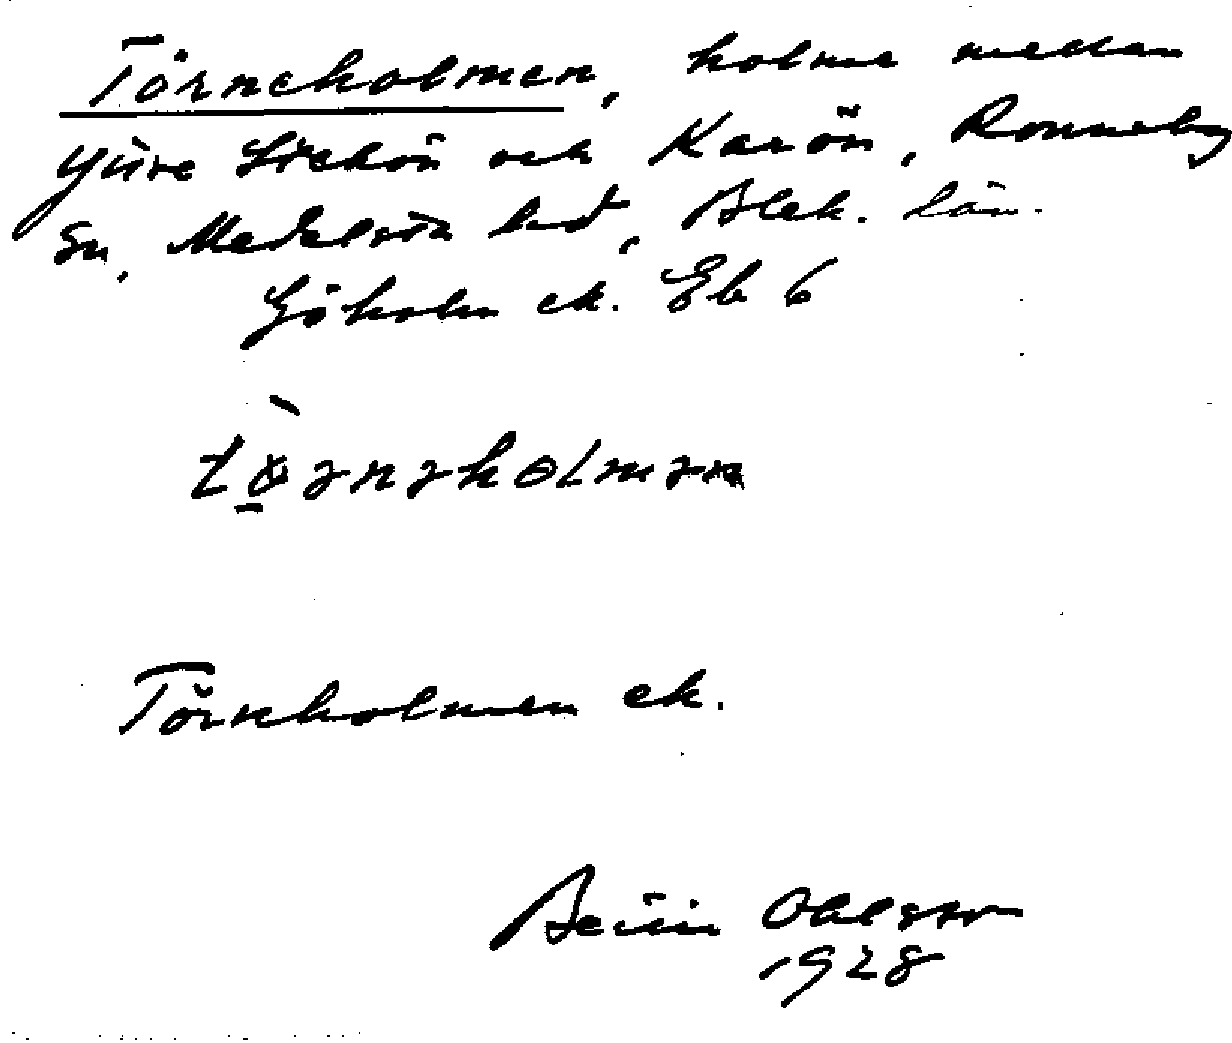 Törneholmen, holme mellan
yttre Stekön och Karön, Ronneby
sn, Medelsta hd, Blek. län.
Göholm ek. Eb 6
Törneholmen ek.
Ohlsson
1928